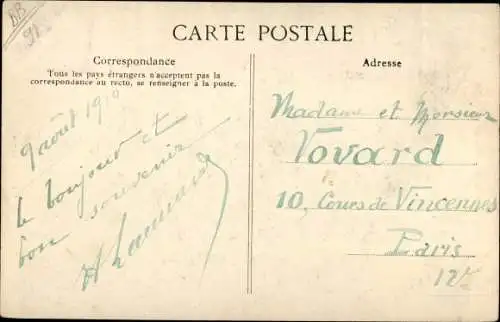 DB
91
CARTE POSTALE
Correspondance
Tous les pays étrangers n'acceptent pas la
correspondance au recto, se renseigner à la poste.
9 août 1910
le bonjour et
bon souvenir
Adresse
Madame et Monsieur
Vovard
10, Cours de Vincennes
Paris
12e